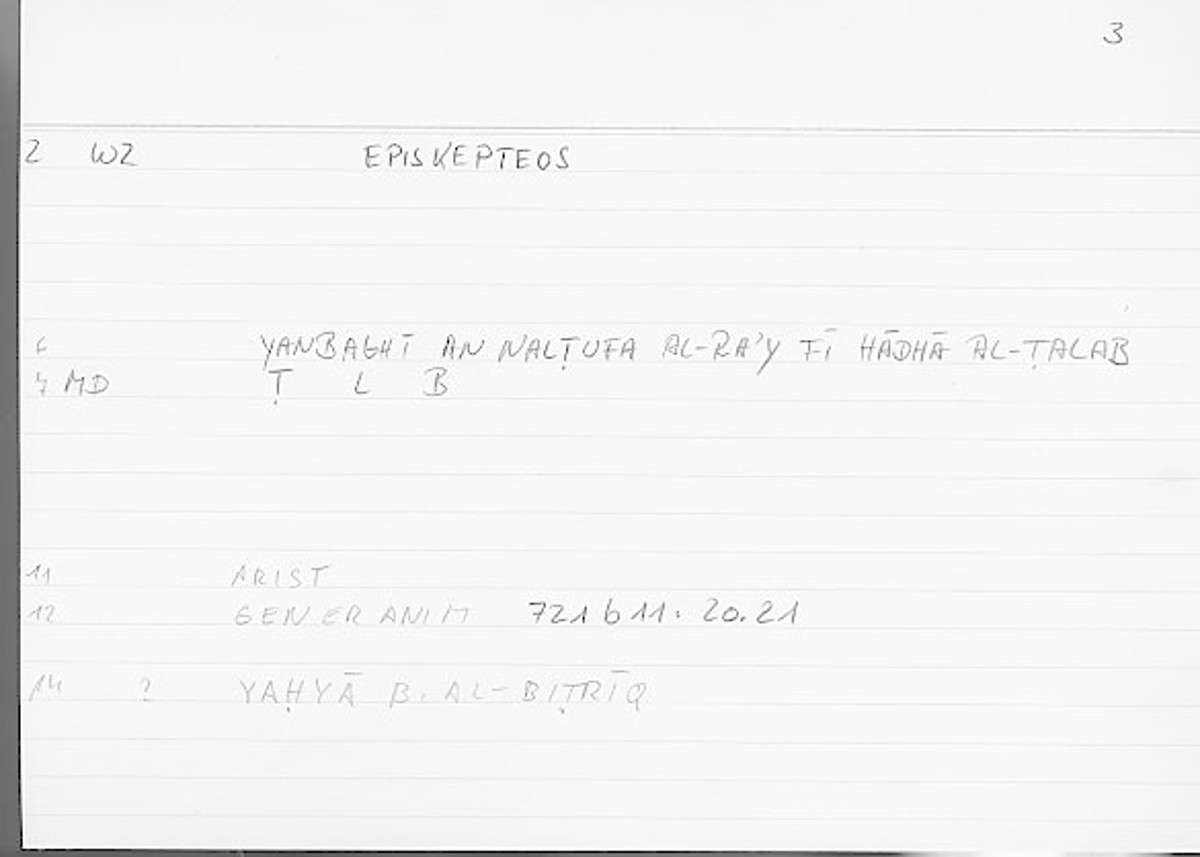 3
2 WZ EPISKEPTEOS
6 YANBAGHĪ AN NALṬUFA AL-RA'Y FĪ HĀDHĀ AL-ṬALAB
7 MD Ṭ L B
11 ARIST
12 GENER ANIM 721 b 11. 20.21
14 ? YAḤYĀ B. AL-BIṬRĪQ